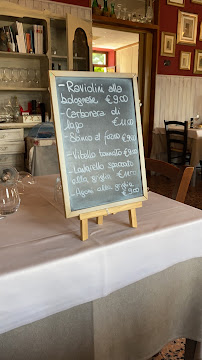 - Raviolini alla
bolognese €9.00
- Carbonara di
lago €11.00
- Salmo al forno €9.00
- Vitello tonnato €9.00
- Lavarello spaccato
alla griglia €11.00
- Agoni alla griglia
€9.00